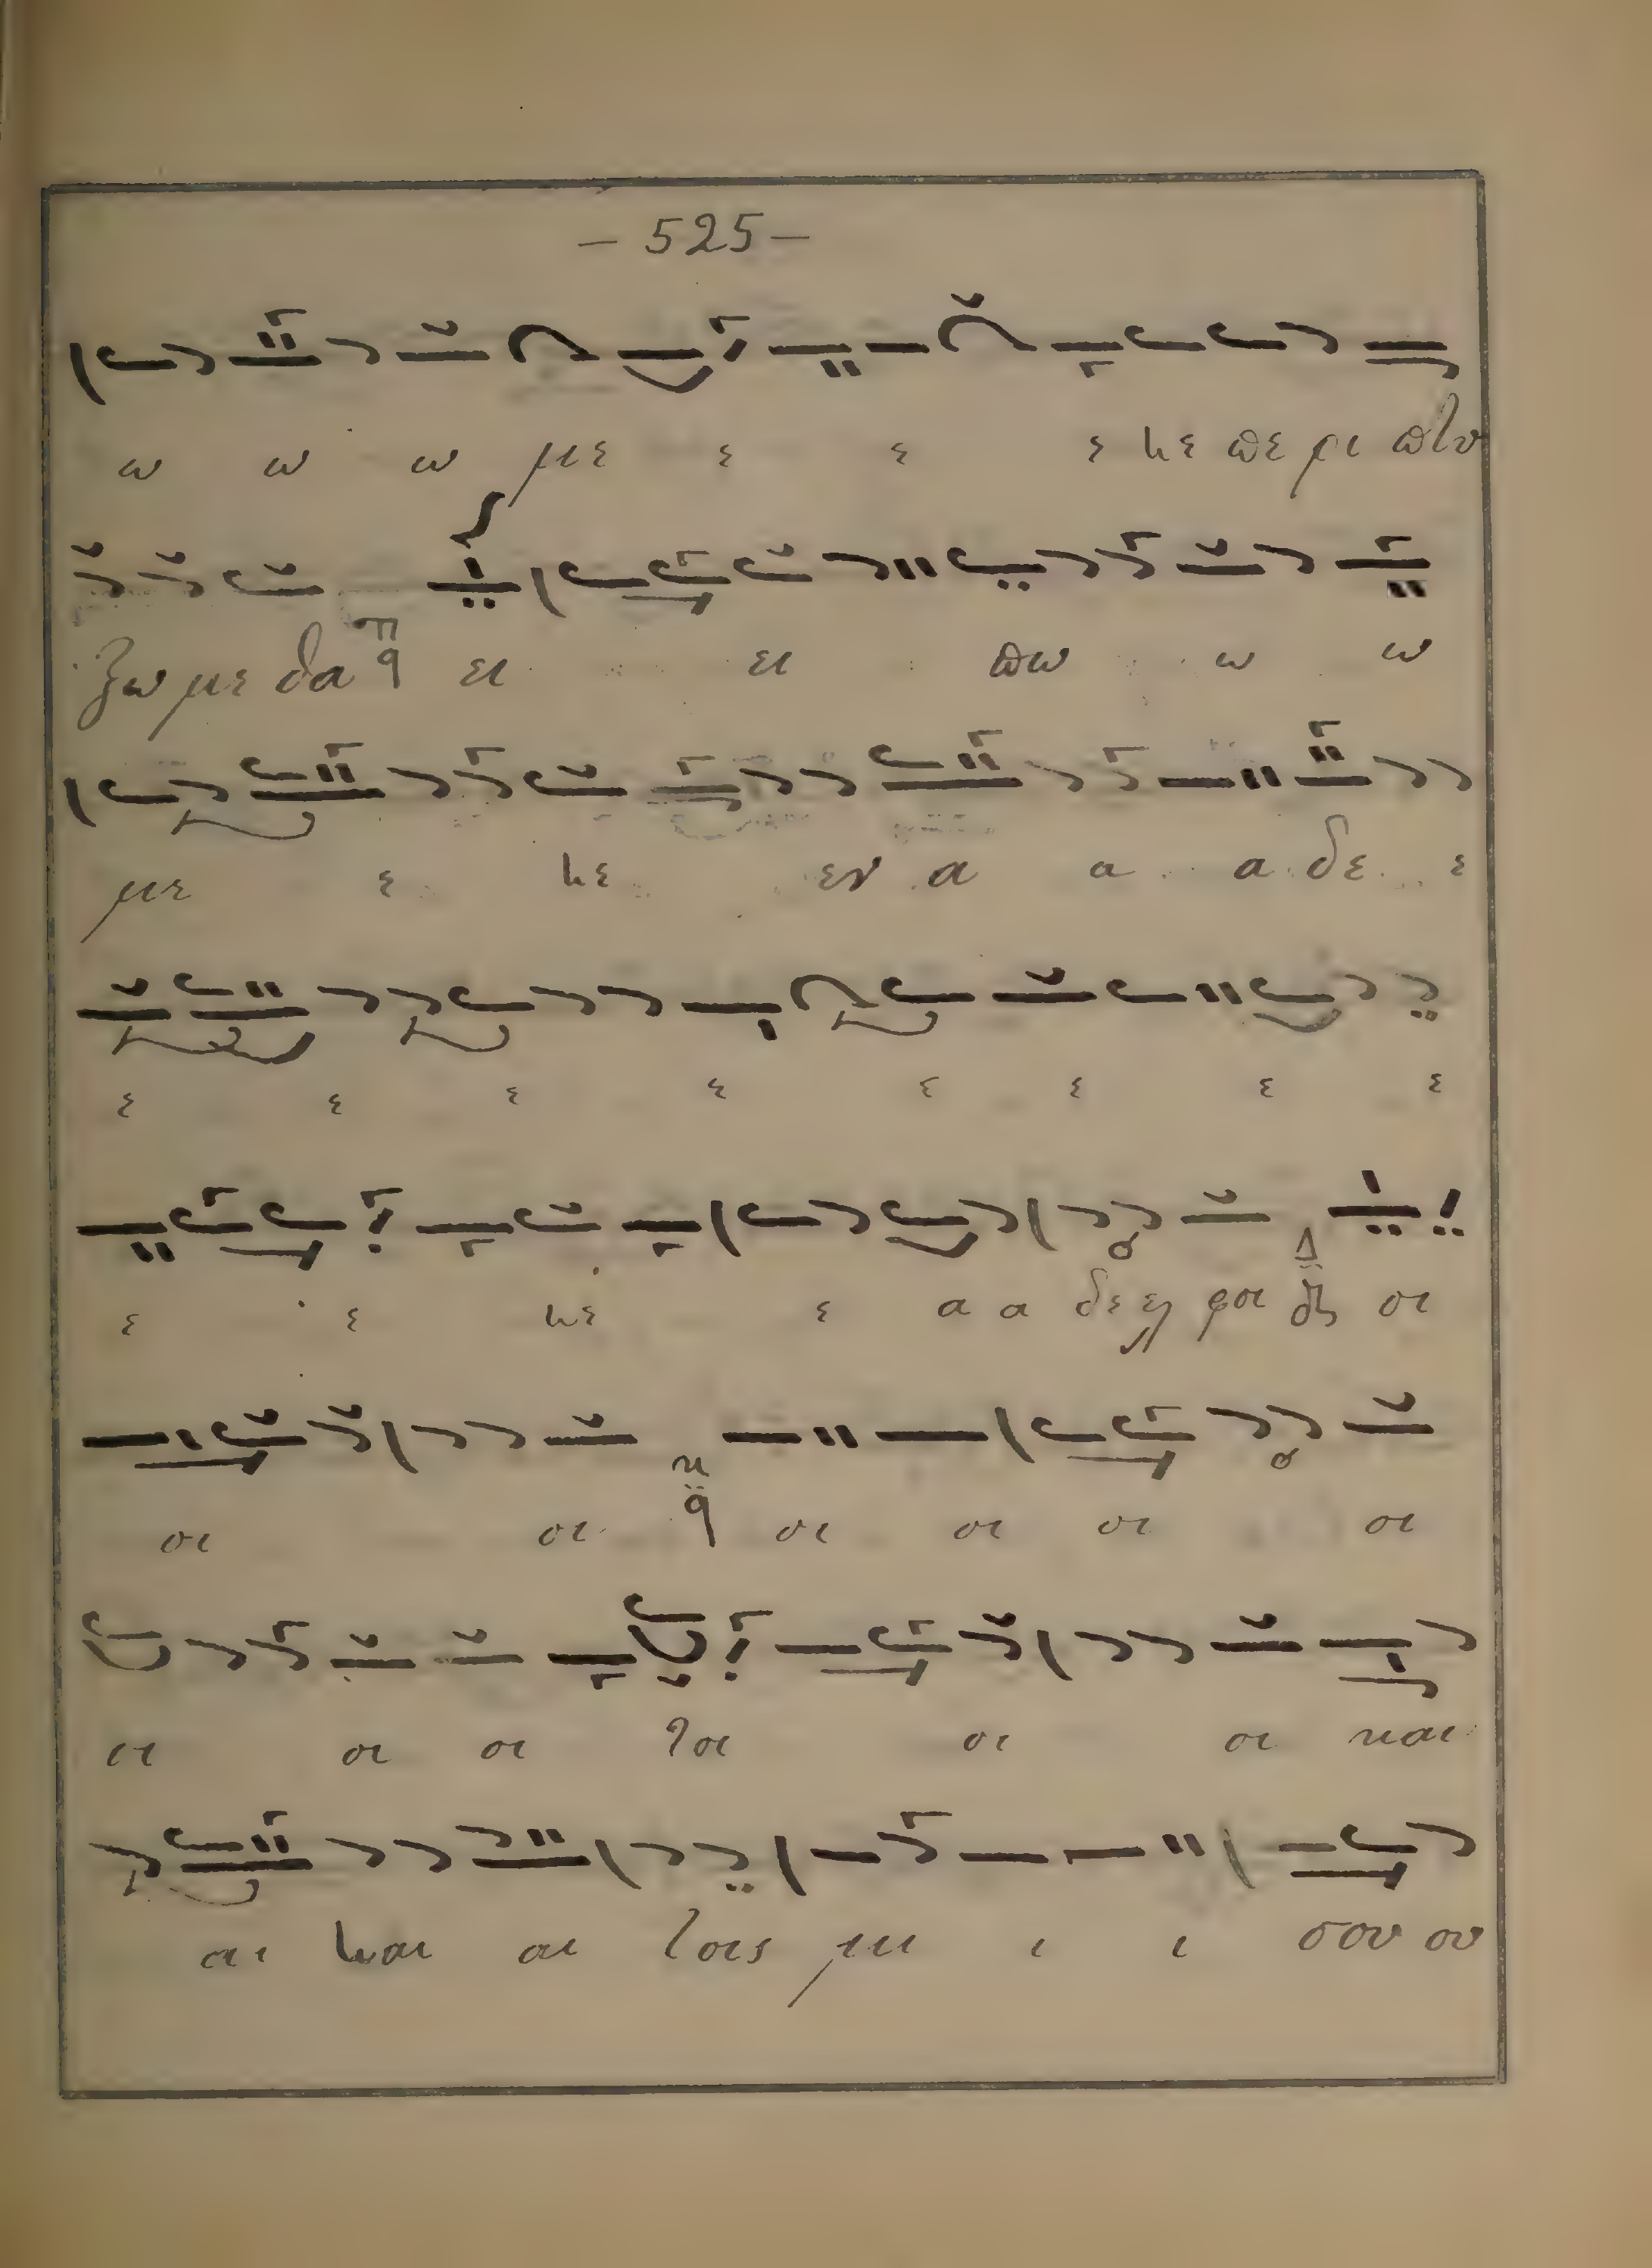 — 525 —
ω ω ω με ε ε ε κε πε ρι πτυ
ξω με θα ει ει πω ω ω
με ε κε εν α α α δε ε
ε ε ε ε ε ε ε ε
ε ε κε ε α α δε ελ φοι οι
οι οι οι οι οι οι
οι οι οι τοι οι οι και
αι και αι τοις μι ι ι σου ου